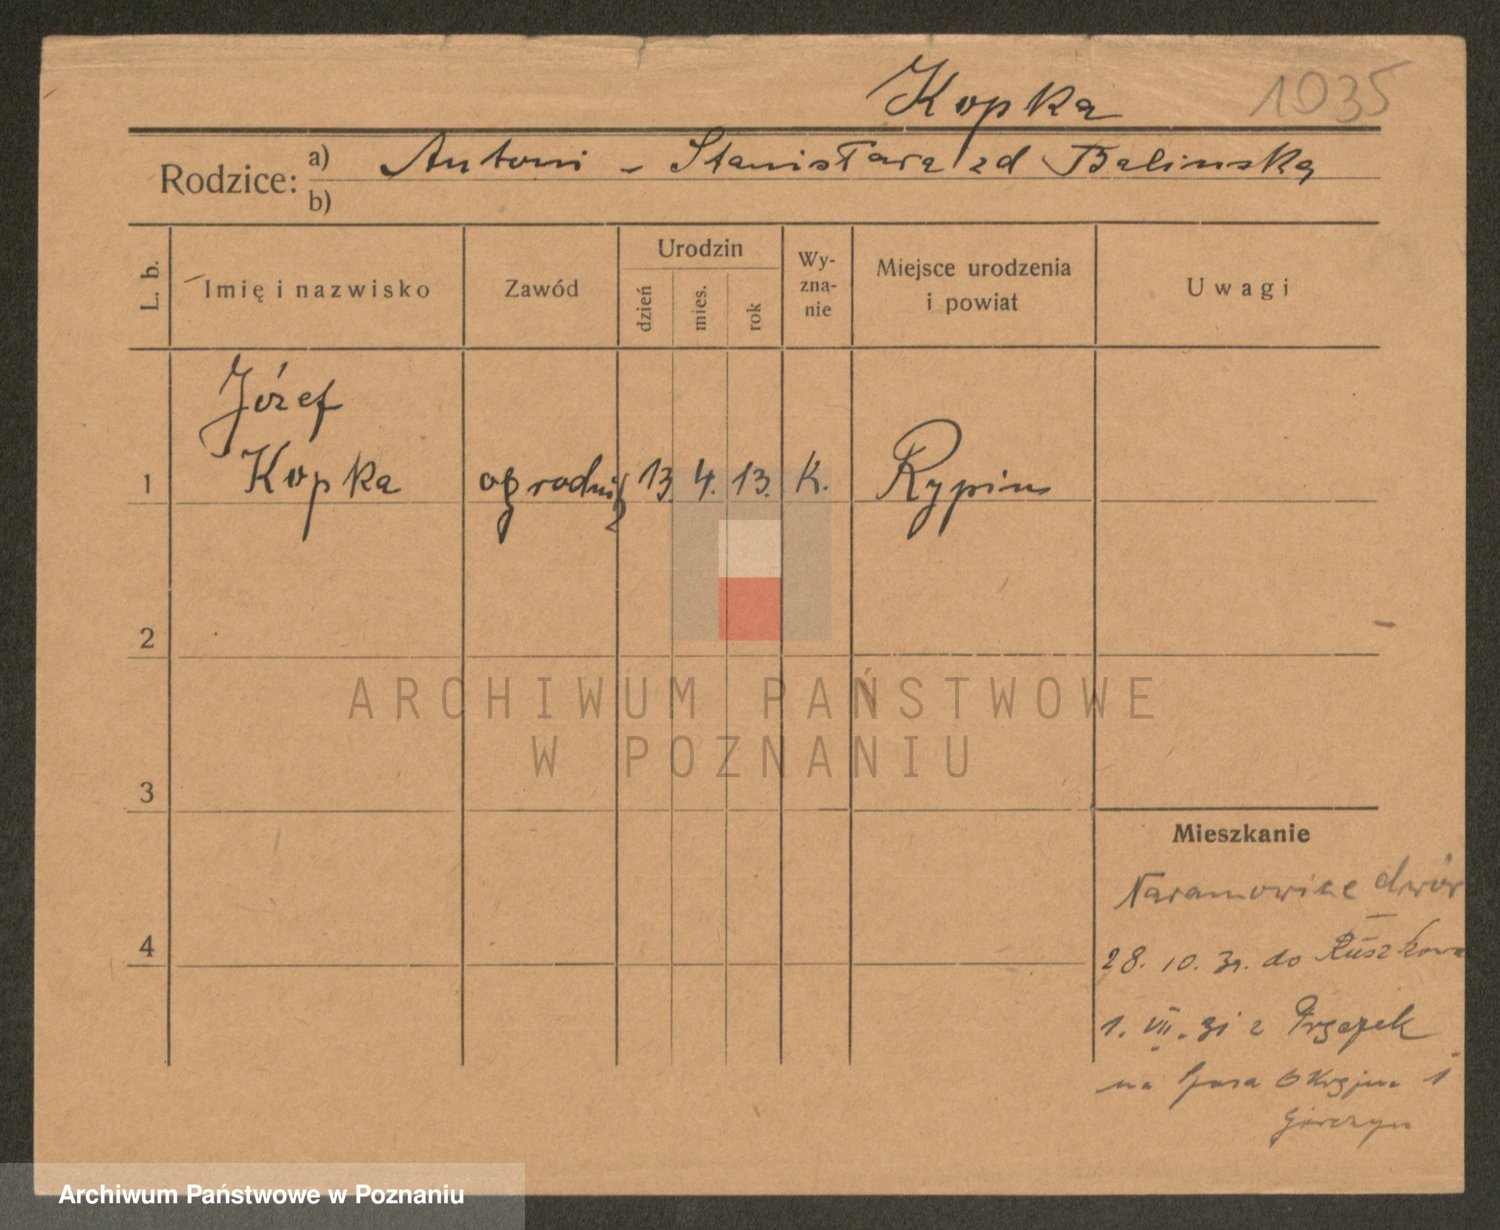 Kopka 1035
Rodzice: a) Antoni - Stanisława zd Balinska
b)
L. b.
Imię i nazwisko
Zawód
Urodzin
dzień
mies.
rok
Wy-
zna-
nie
Miejsce urodzenia
i powiat
Uwagi
Józef
1 Kopka ogrodnik 13. 4. 13. K. Rypin
2
3
4
ARCHIWUM PAŃSTWOWE
W POZNANIU
Mieszkanie
Naramowice dwór
28. 10. 31. do
1. VII. 31 z
na
Górczyn
Archiwum Państwowe w Poznaniu